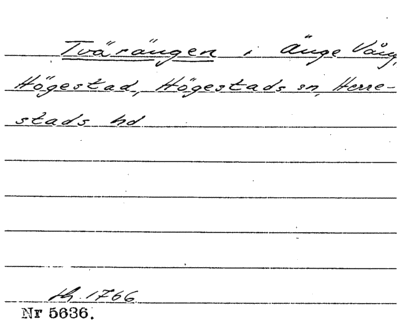 Tvärängen i Änge Vång,
Högestad, Högestads sn, Herre-
stads hd
1766
Nr 5636.